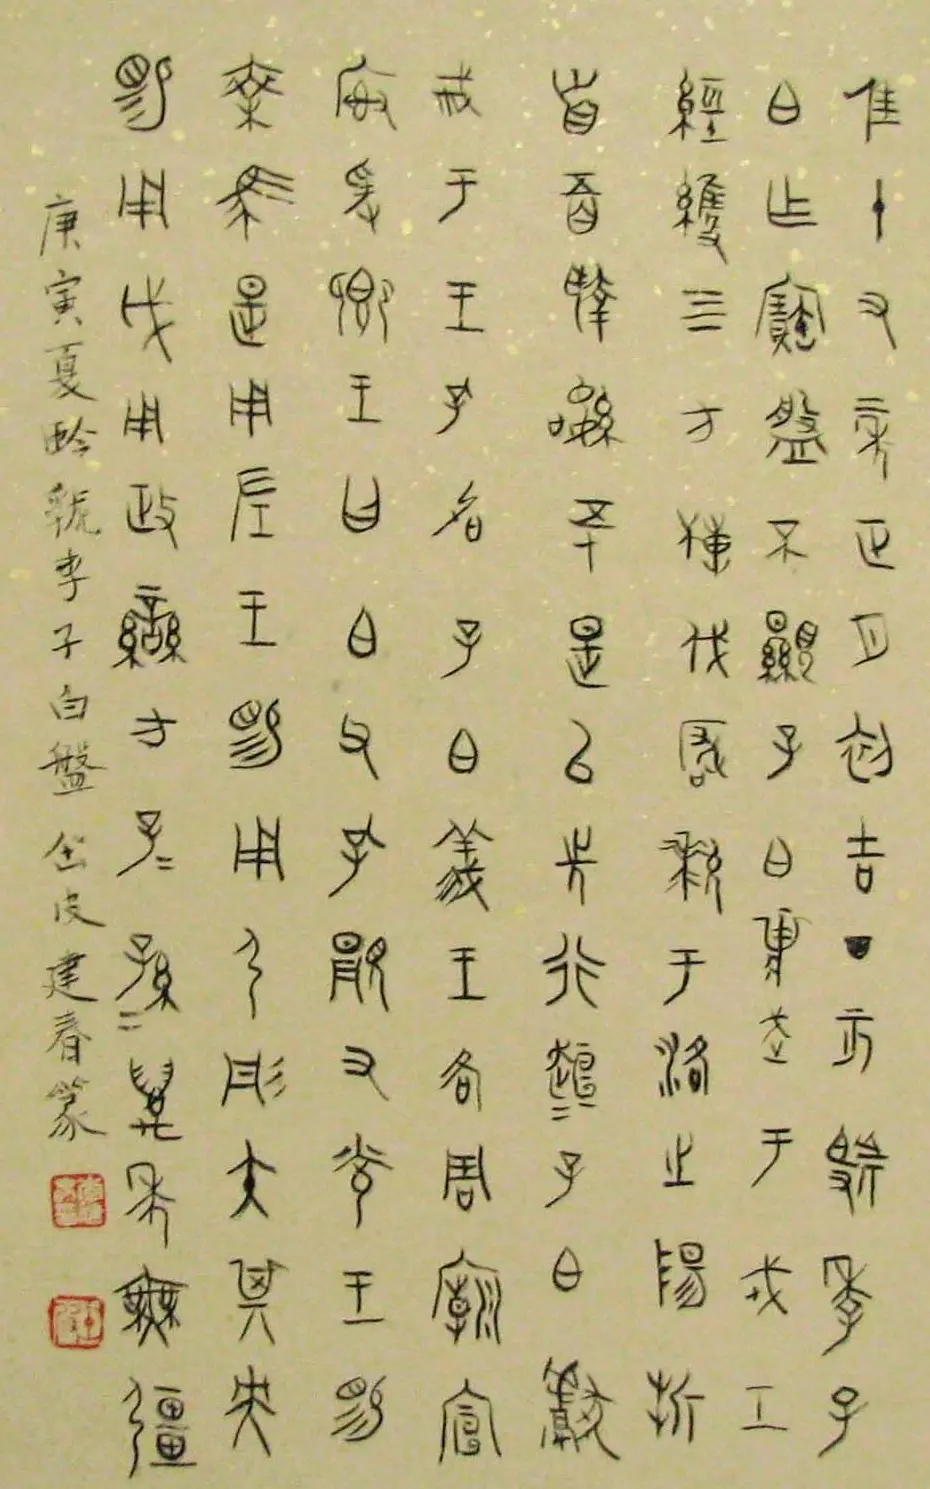 隹十又二年正月初吉丁亥虢季子
白乍寶盤不顯子白壯武于戎工
經維四方搏伐玁狁于洛之陽折
首五百執訊五十是以先行桓＝子白獻
馘于王孔加子白義王各周廟宣
榭爰卿王曰白父孔顯又光王睗
乘馬是用左王睗用弓彤矢其央
睗用戉用政蠻方子＝孫＝萬年無疆
庚寅夏臨虢季子白盤 皮建春篆